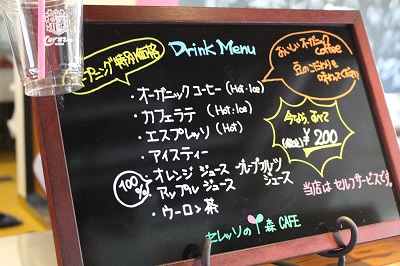 オープニング特別価格
Drink Menu
おいしいオーガニック
coffee
豆のこだわりを
味わってください
・オーガニックコーヒー (Hot・Ice)
・カフェラテ (Hot・Ice)
・エスプレッソ (Hot)
・アイスティー
100%
・オレンジジュース グレープフルーツジュース
アップルジュース
・ウーロン茶
今なら、すべて
¥200
当店はセルフサービスです。
セレッソの森 CAFE